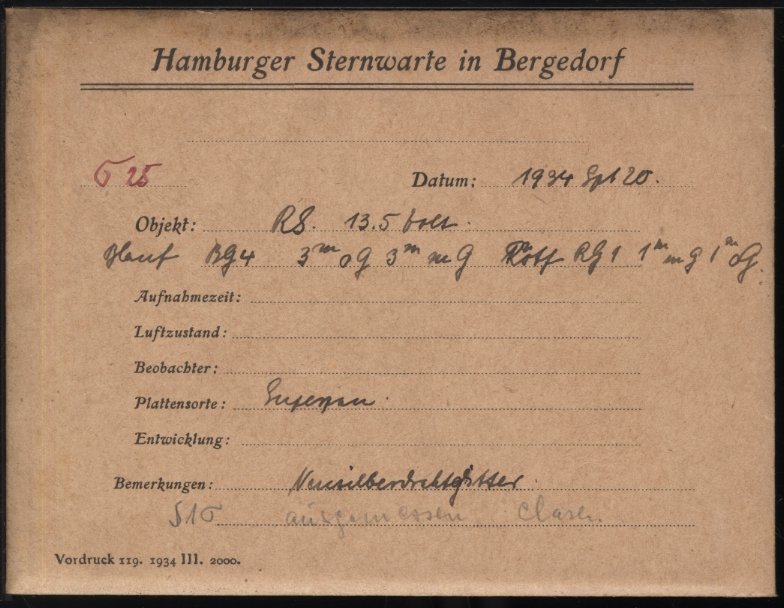 Hamburger Sternwarte in Bergedorf
σ 25 Datum: 1934 Spt 20.
Objekt: RS. 13.5 Volt.
BG4 3ᵐ oG 3ᵐ mG Rotf RG1 1ᵐ mG 1ᵐ oG.
Aufnahmezeit:
Luftzustand:
Beobachter:
Plattensorte:
Entwicklung:
Bemerkungen: Neusilberdrahtgitter.
ausgemessen
Vordruck 119. 1934 III. 2000.